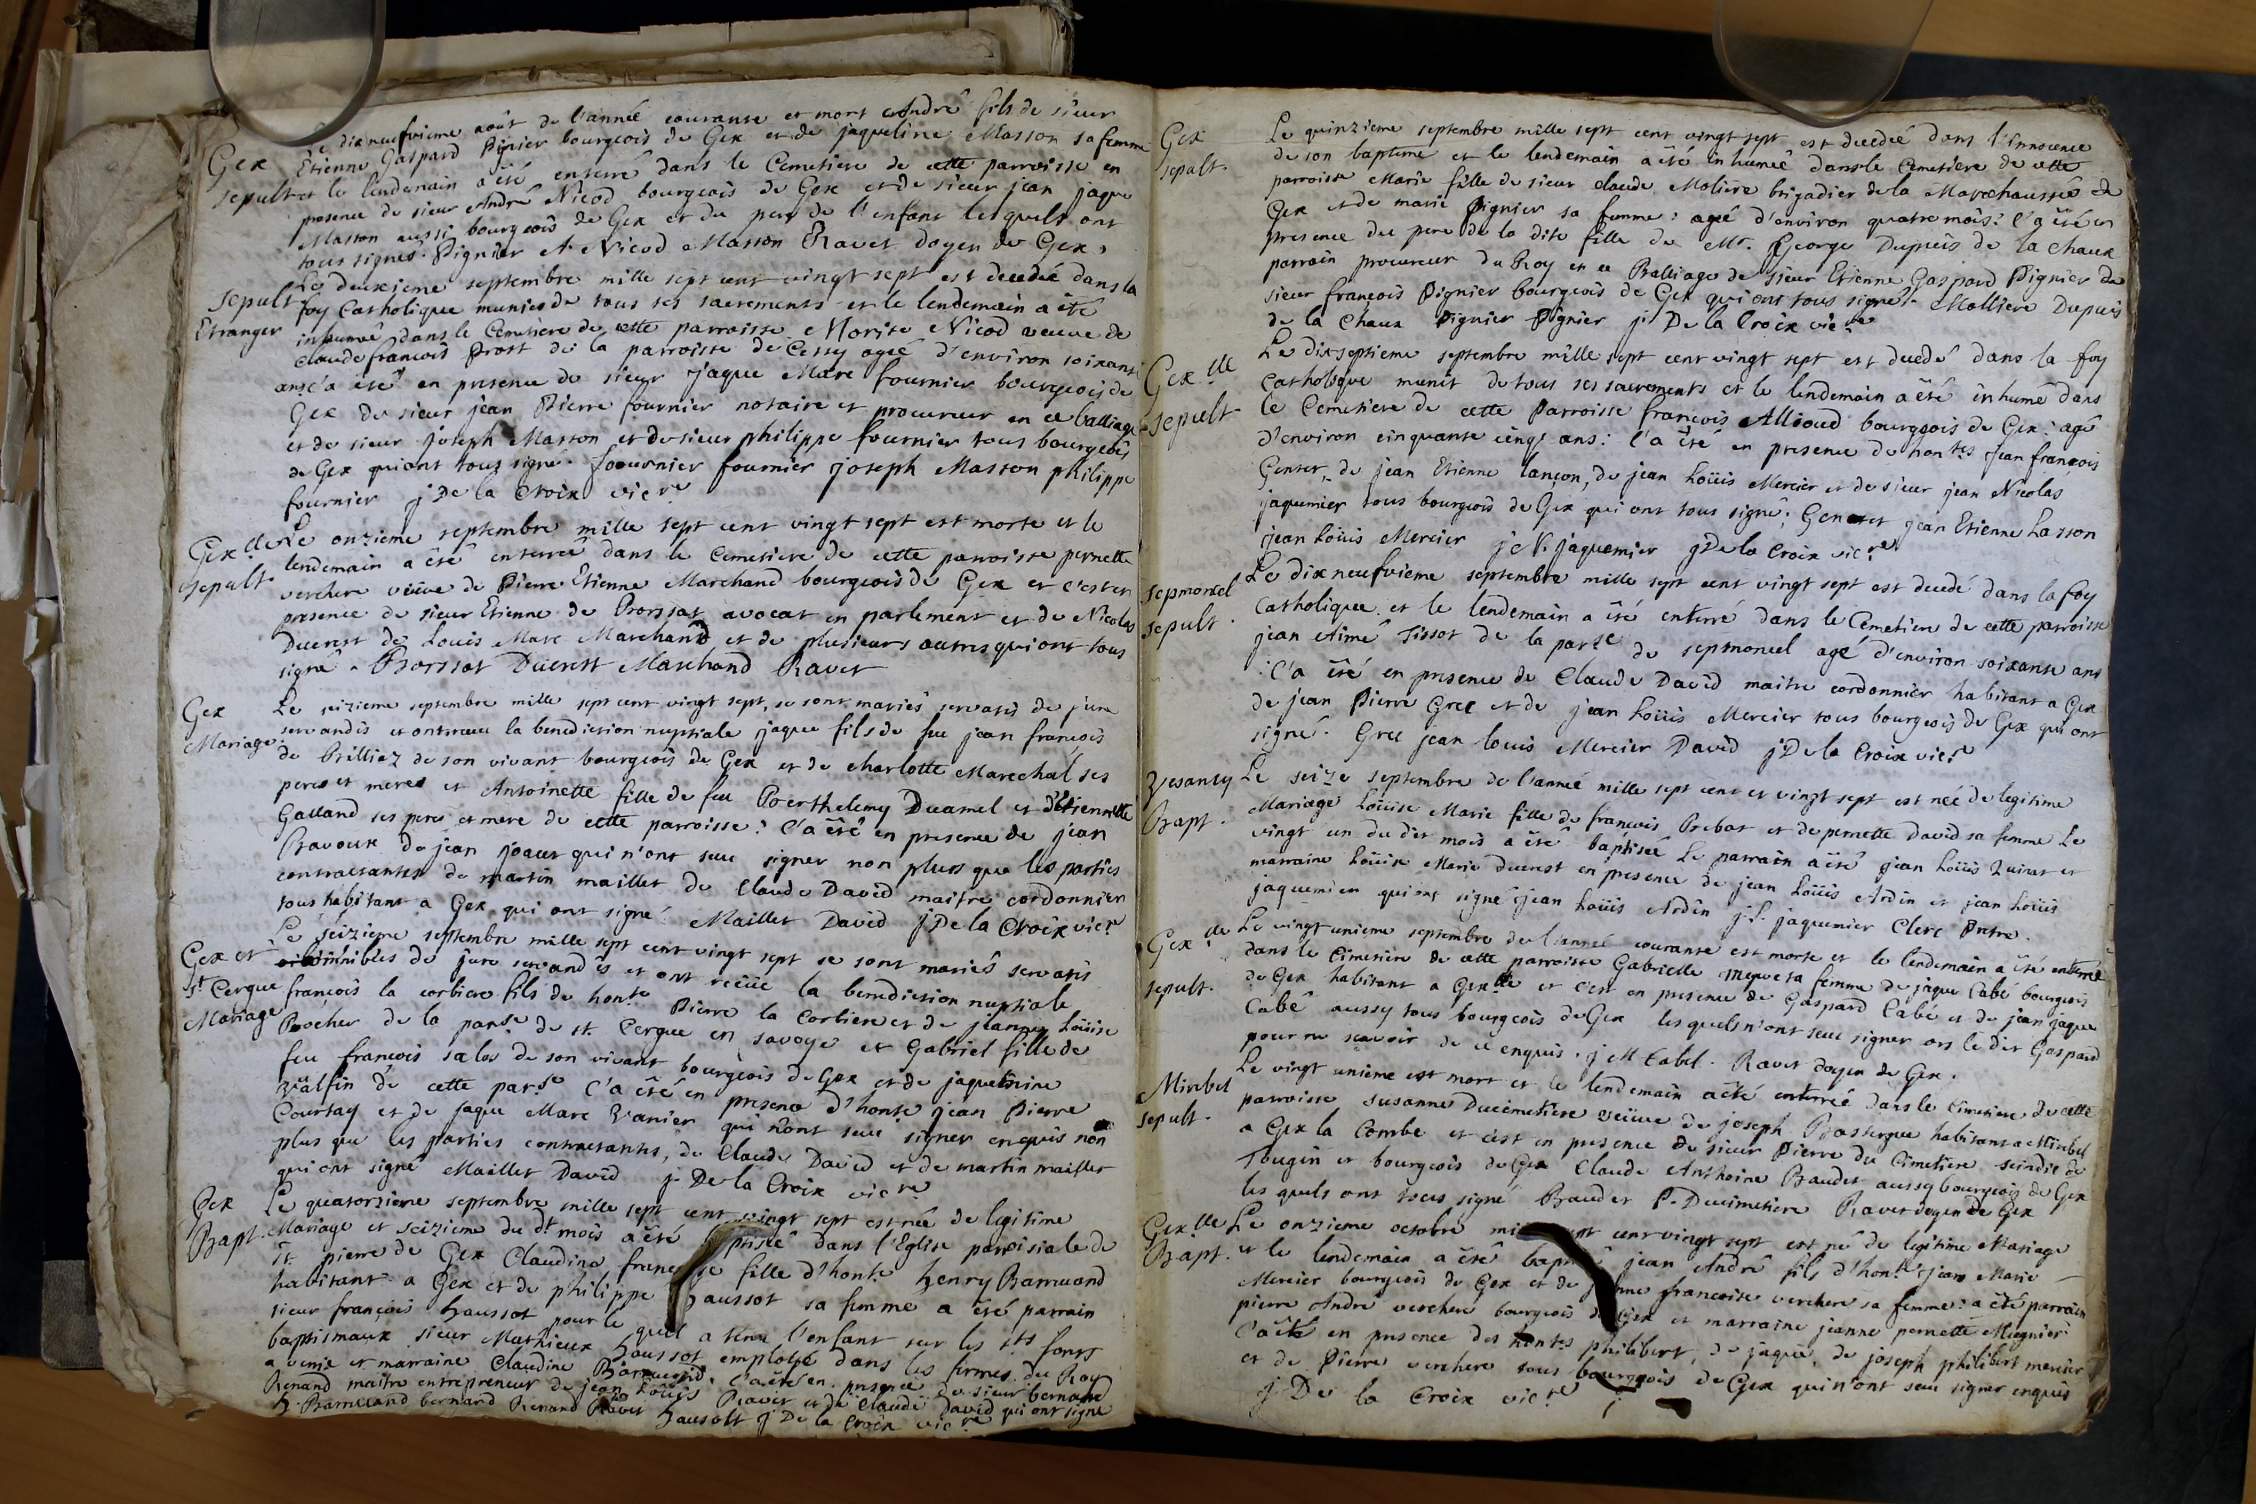 Gex
sepult
Le dixneufvieme août de l'anneé courante et mort André fils de sieur
Etienne Gaspard Pignier bourgeois de Gex et de jaqueline Masson sa femme
et le lendemain a été enterré dans le Cemetiere de cette parroisse en
presence de sieur André Nicod bourgeois de Gex et de sieur jean jaque
Masson aussi bourgeois de Gex et du pere de l'enfant lesquels ont
tous signés. Pignier A Nicod Masson Ravet doyen de Gex,
sepult
Etranger
Le deuxieme septembre mille sept cent vingt sept est decedeé dans la
foy Catholique munie de tous ses sacrements et le lendemain a été
inhumeé dans le Cemetiere de cette parroisse Morise Nicod veuve de
claude françois Prost de la parroisse de Cessy ageé d'environ soixante
ans: c'a été en presence de sieur jaque Marc fournier bourgeois de
Gex de sieur jean Pierre fournier notaire et procureur en ce balliage
et de sieur joseph Masson et de sieur philippe fournier tous bourgeois
de Gex qui ont tous signé. foournier fournier joseph Masson philippe
fournier j De la Croix vic.re
Gex lle
sepult
Le onzieme septembre mille sept cent vingt sept est morte et le
lendemain a été enterreé dans le Cemetiere de cette parroisse pernette
verchere veuve de Pierre Etienne Marchand bourgeois de Gex et c'est en
presence de sieur Etienne de Borssat avocat en parlement et de Nicolas
Ducrest de Louis Marc Marchand et de plusieurs autres qui ont tous
signé. Borssat Ducrest Marchand Ravet
Gex
Mariage
Le seizieme septembre mille sept cent vingt sept, se sont mariés servatis de jure
servandis et ont receu la benediction nuptiale jaque fils de feu jean françois
de Prilliaz de son vivant bourgeois de Gex et de charlotte Marechal ses
peres et meres et Antoinette fille de feu Berthelemy Ducamel et d'etiennette
Galland ses pere et mere de cette parroisse: C'a été en presence de jean
Ravoux de jean joacer qui n'ont seu signer non plus que les parties
contractantes de martin maillet de Claude David maitre cordonnier
tous habitant a Gex qui ont signé. Maillet David j De la Croix vic.re
Gex et
St Cergue
Mariage
Le seizieme septembre mille sept cent vingt sept se sont mariés servatis
de jure servandis et ont receue la benediction nuptiale
françois la corbiere fils de hon.te Pierre la Corbiere et de jeanne Louise
Rocher de la par.se de st Cergue en savoye et Gabriel fille de
feu françois salos de son vivant bourgeois de Gex et de jaquemine
Zalfin de cette par.se C'a été en presence d'hon.te jean Pierre
Courtay et de jaque Marc Vanier qui n'ont seu signer enquis non
plus que les parties contractantes, de Claude David et de martin maillet
qui ont signé Maillet David j. De la Croix vic.re
Gex
Bapt.
Le quatorzieme septembre mille sept cent vingt sept est neé de legitime
Mariage et seizieme du dt mois a été baptiseé dans l'Eglise paroisiale de
st pierre de Gex Claudine françoise fille d'hon.te henry Barruand
habitant a Gex et de philippe haussot sa femme a été parrain
sieur françois haussot pour le quel a tenu l'enfant sur les sts fonts
baptismaux sieur Mathieux haussot employé dans les fermes du Roy
a venie et marraine Claudine Barruand, C'a été en presence de sieur bernard
Renand maître entrepreneur de jean Louis Ravet et de Claude David qui ont signé
h. Barruand bernard Renand Ravet hausolt j De la Croix vic.re
Gex
sepult.
Le quinzieme septembre mille sept cent vingt sept est decedeé dans l'Innocence
de son baptême et le lendemain a été inhumeé dans le Cemetiere de cette
parroisse Marie fille de sieur claude Moliere brigadier de la Marechausseé de
Gex et de marie Pignier sa femme: ageé d'environ quatre mois: C'a été en
presence du pere de la dite fille de Mr. George Dupuis de la Chaux
parrain procureur du Roy en ce Balliage de sieur Etienne Gaspard Pignier de
sieur françois Pignier bourgeois de Gex qui ont tous signé. Molliere Dupuis
de la Chaux Pignier Pignier j De la Croix vic.re
Gex lle
sepult
Le dix septieme septembre mille sept cent vingt sept est decedé dans la foy
Catholique munit de tous ses sacrements et le lendemain a été inhumé dans
le Cemetiere de cette parroisse françois Allioud bourgeois de Gex: agé
d'environ cinquante cinq ans: C'a été en presence de hon.tes jean françois
Genter, de jean Etienne lançon, de jean Loüis Mercier et de sieur jean Nicolas
jaquemier tous bourgeois de Gex qui ont tous signé; Genetet jean Etienne Lasson
jean Loüis Mercier j. N. jaquemier j De la Croix vic.re
septmoncel
sepult.
Le dix neufvieme septembre mille sept cent vingt sept est decedé dans la foy
Catholique et le lendemain a été enterré dans le Cemetiere de cette parroisse
jean Aimé Tissot de la par.se de septmoncel agé d'environ soixante ans
: C'a été en presence de Claude David maitre cordonnier habitant a Gex
de jean Pierre Grec et de jean Loüis Mercier tous bourgeois de Gex qui ont
signé. Grec jean louis Mercier David j De la Croix vic.re
Vesancy
Bapt.
Le seize septembre de l'anneé mille sept cent et vingt sept est neé de legitime
Mariage Loüise Marie fille de francois Probat et de pernette David sa femme Le
vingt un du dit mois a été baptiseé Le parrain a été jean Loüis Zuinat et
marraine Loüise Marie Ducrest en presence de jean Loüis Ardin et jean Loüis
jaquemier qui ont signé jean Loüis Ardin j. L. jaquemier Clerc Pretre.
Gex lle
sepult.
Le vingt unieme septembre de l'anneé courante est morte et le lendemain a été enterreé
dans le Cimetiere de cette parroisse Gabrielle sa femme de jaque Cabé bourgeois
de Gex habitant a Gex lle et c'est en presence de Gaspard Cabé et de jean jaque
Cabé aussy tous bourgeois de Gex les quels n'ont seu signer ors le dit Gaspard
pour ne scavoir de ce enquis. j M Cabé. Ravet doyen de Gex.
Mirebel
sepult.
Le vingt unieme est mort et le lendemain a été enterreé dans le Cimetiere de cette
parroisse susanne Ducimetiere veüue de joseph Rostergue habitant a Mirebel
a Gex la Combe et c'est en presence de sieur Pierre du Cimetiere scindic de
Tougin et bourgeois de Gex Claude Anthoine Baudet aussy bourgeois de Gex
les quels ont tous signé Baudet P. Ducimetiere Ravet doyen de Gex
Gex lle
Bapt.
Le onzieme octobre mille sept cent vingt sept est né de legitime Mariage
et le lendemain a été baptisé jean André fils d'hon.te jean Marie
Mercier bourgeois de Gex et de jeanne francoise verchere sa femme: a été parrain
pierre Andre verchere bourgeois de Gex et marraine jeanne pernette Mugnier
C'a été en presence des hon.tes philibert, de jaque, de joseph philibert mercier
et de Pierre verchere tous bourgeois de Gex qui n'ont seu signer enquis
j. De la Croix vic.re